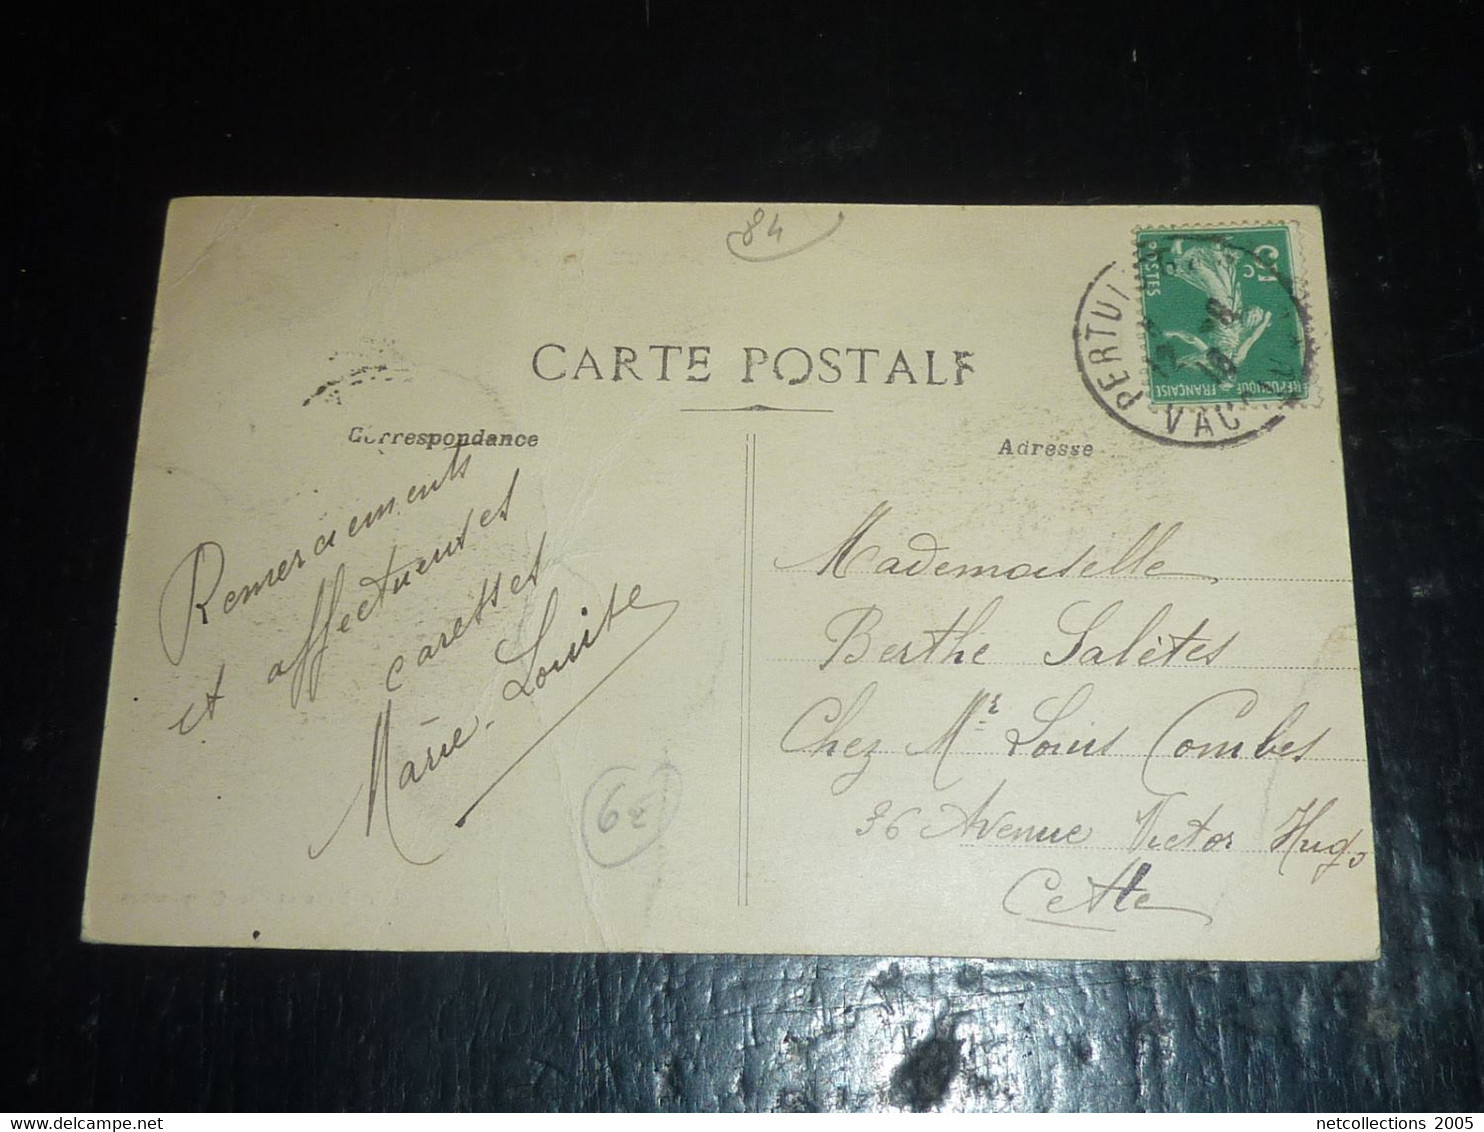 84
CARTE POSTALE
Correspondance
Adresse
5 c
POSTES
RÉPUBLIQUE FRANÇAISE
PERTUI
VAUC
Remerciements
et affectueuses
caresses
Marie-Louise
6€
Mademoiselle
Berthe Salètes
Chez Mr Louis Combes
36 Avenue Victor Hugo
Cette
netcollections 2005